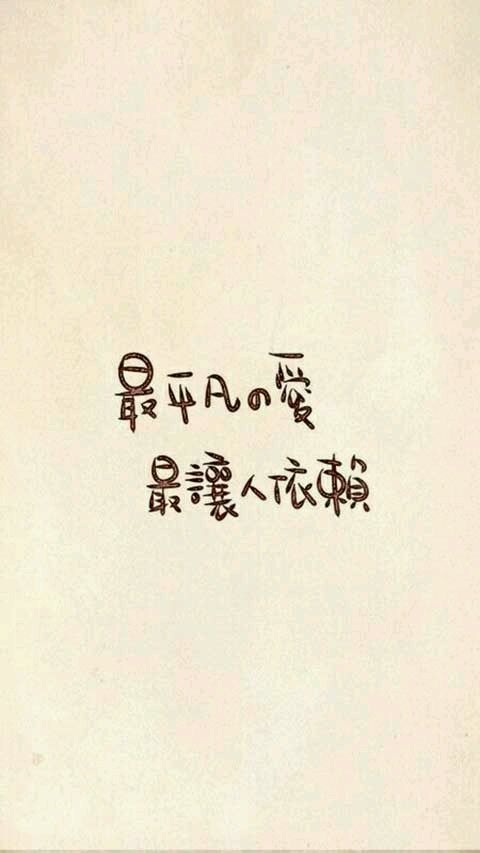 最平凡の愛
最讓人依賴